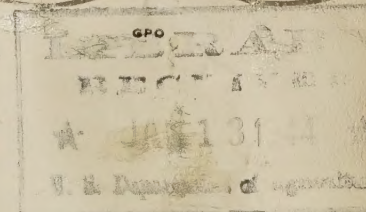 GPO
LIBRARY
RECEIVED
★ JAN 13 1944 ★
U. S. Department of Agriculture